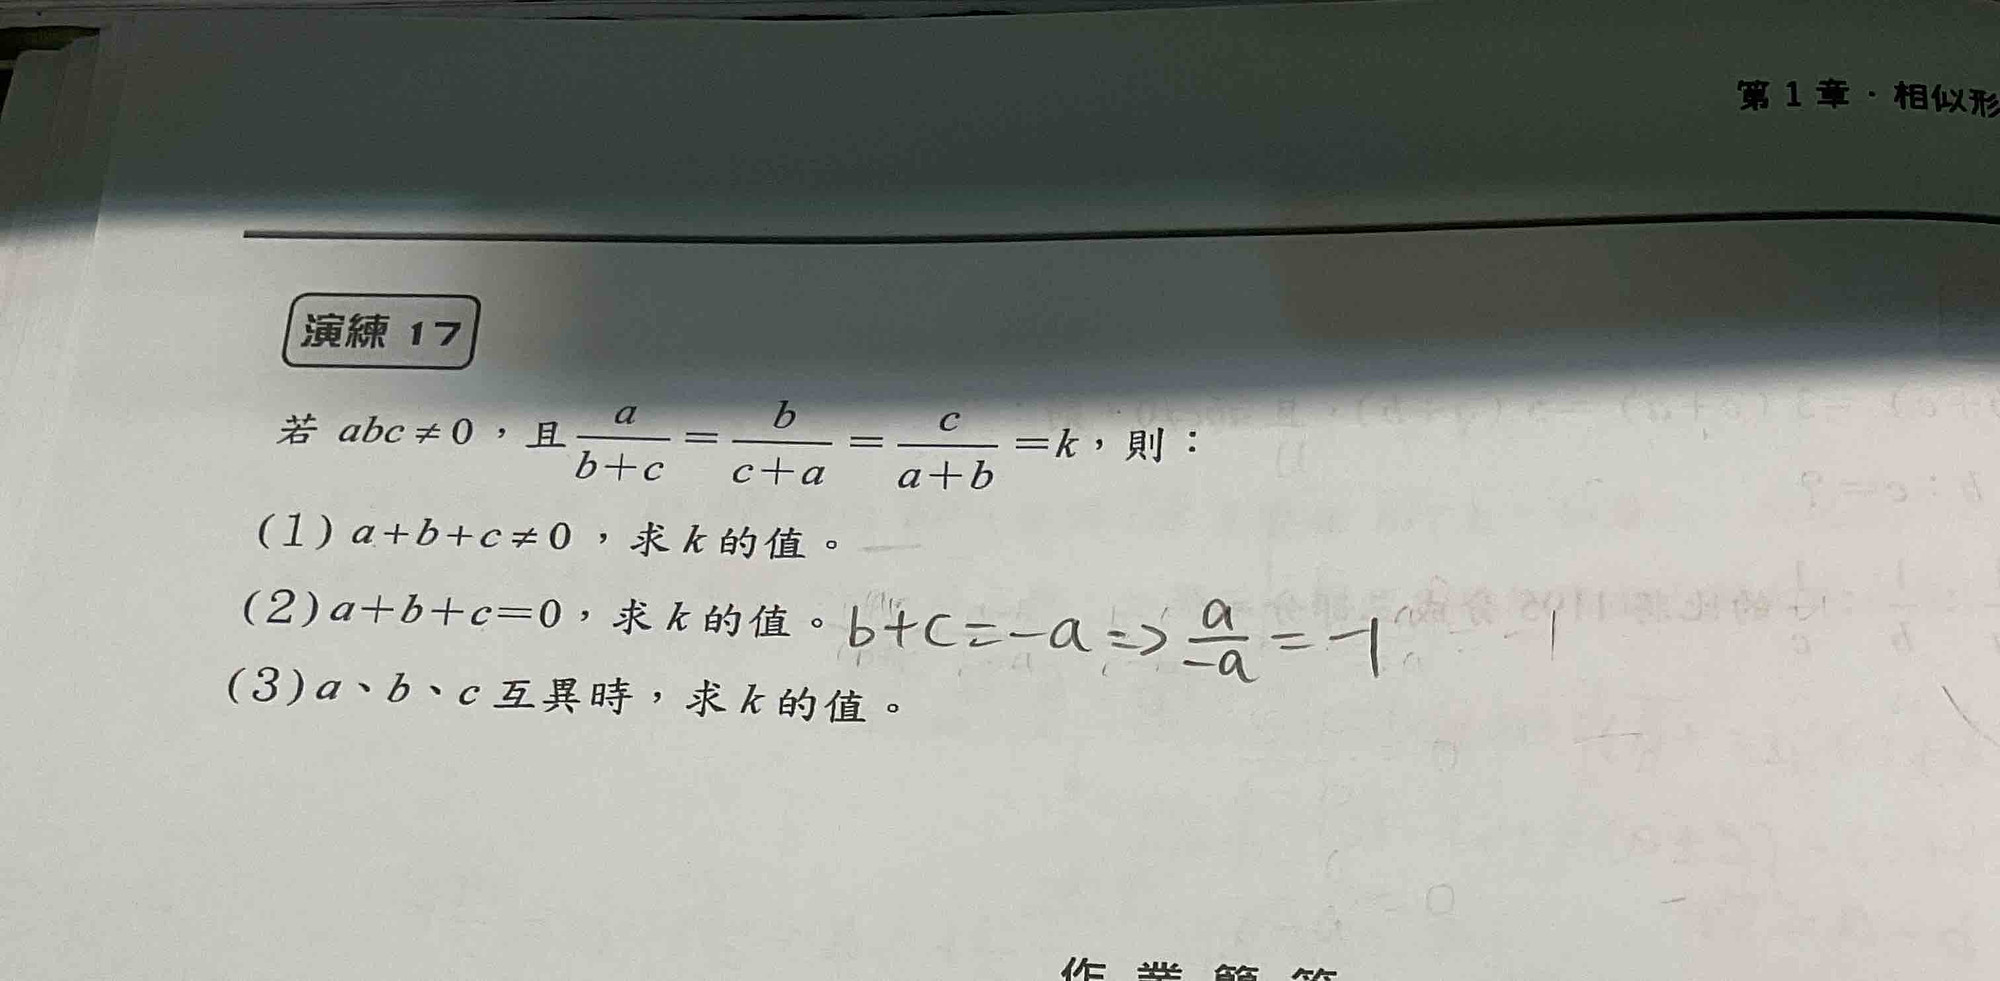 第1章·相似形
演練 17
若 abc≠0，且 a/(b+c) = b/(c+a) = c/(a+b) =k，則：
(1) a+b+c≠0，求 k 的值。
(2) a+b+c=0，求 k 的值。 b+c=-a=> a/-a = -1
(3) a、b、c 互異時，求 k 的值。
作業簡答